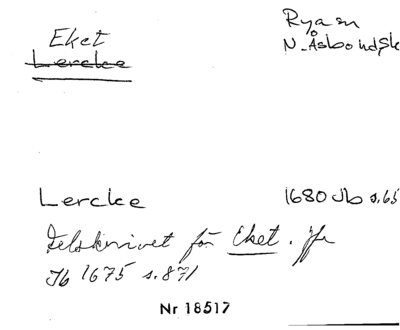 Eket
Lercke
Ryåsn
N. Åsbo hdsk
Lercke 1680 Jb s.65
Felskrivet för Eket. jfr
Jb 1675 s. 871
Nr 18517